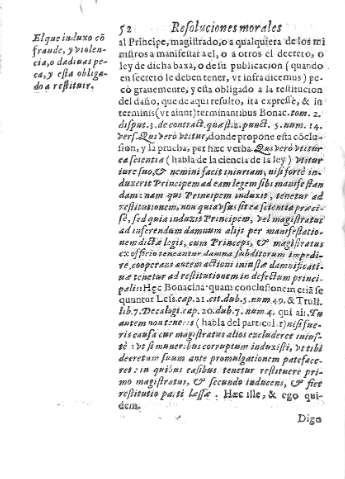 52 Resoluciones morales
El que induxo cõ
fraude, y violen-
cia, o dadiuas pe-
ca, y esta obliga-
do a restituir.
al Principe, magistrado, o a qualquiera de los mi
nistros a manifestar ael, o a otros el decreto, o
ley de dicha baxa, o de su publicacion (quando
en secreto le deben tener, vt infra dicemus) pe-
cò grauemente, y està obligado a la restitucion
del daño, que de aqui resultò, ita expressè, & in
terminis (vt aiunt) terminantibus Bonac. tom. 2.
disput. 3. de contract. quæst. 2. punct. 5. num. 14.
vers. Qui verò vtitur, donde propone esta cõclu-
sion, y la prueba, per hæc verba. Qui verò vtitur
ea scientia (habla de la ciencia de la ley) vtitur
iure suo, & nemini facit iniuriam, nisi fortè in
duxerit Principem ad eam legem sibi manifestan
dam: nam qui Principem induxit, tenetur ad
restitutionem, non quia vsus sit ea scientia præci-
sè, sed quia induxit Principem, vel magistratum
ad inferendum damnum alijs per manifestatio-
nem dictæ legis, cum Princeps, & magistratus
ex officio teneantur damna subditorum impedi-
re, cooperans autem actioni iniustæ damnificati-
uæ tenetur ad restitutionem in defectum princi-
palis: Hęc Bonacina quam conclusionem etiã se
quuntur Less. cap. 21. est. dub. 5. num. 49. & Trull.
lib. 7. Decalogi cap. 20. dub. 7. num 4. qui ait: Tu
autem non teneris (habla del particular) nisi fue-
ris causa cur magistratus alios excluderet iniu-
stè: vt si muneribus corruptum induxisti, vt tibi
decretum suum ante promulgationem pateface-
ret: in quibus casibus tenetur restituere pri-
mo magistratus, & secundo inducens, & fiet
restitutio parti læsæ. Hæc ille, & ego qui-
dem.
Digo